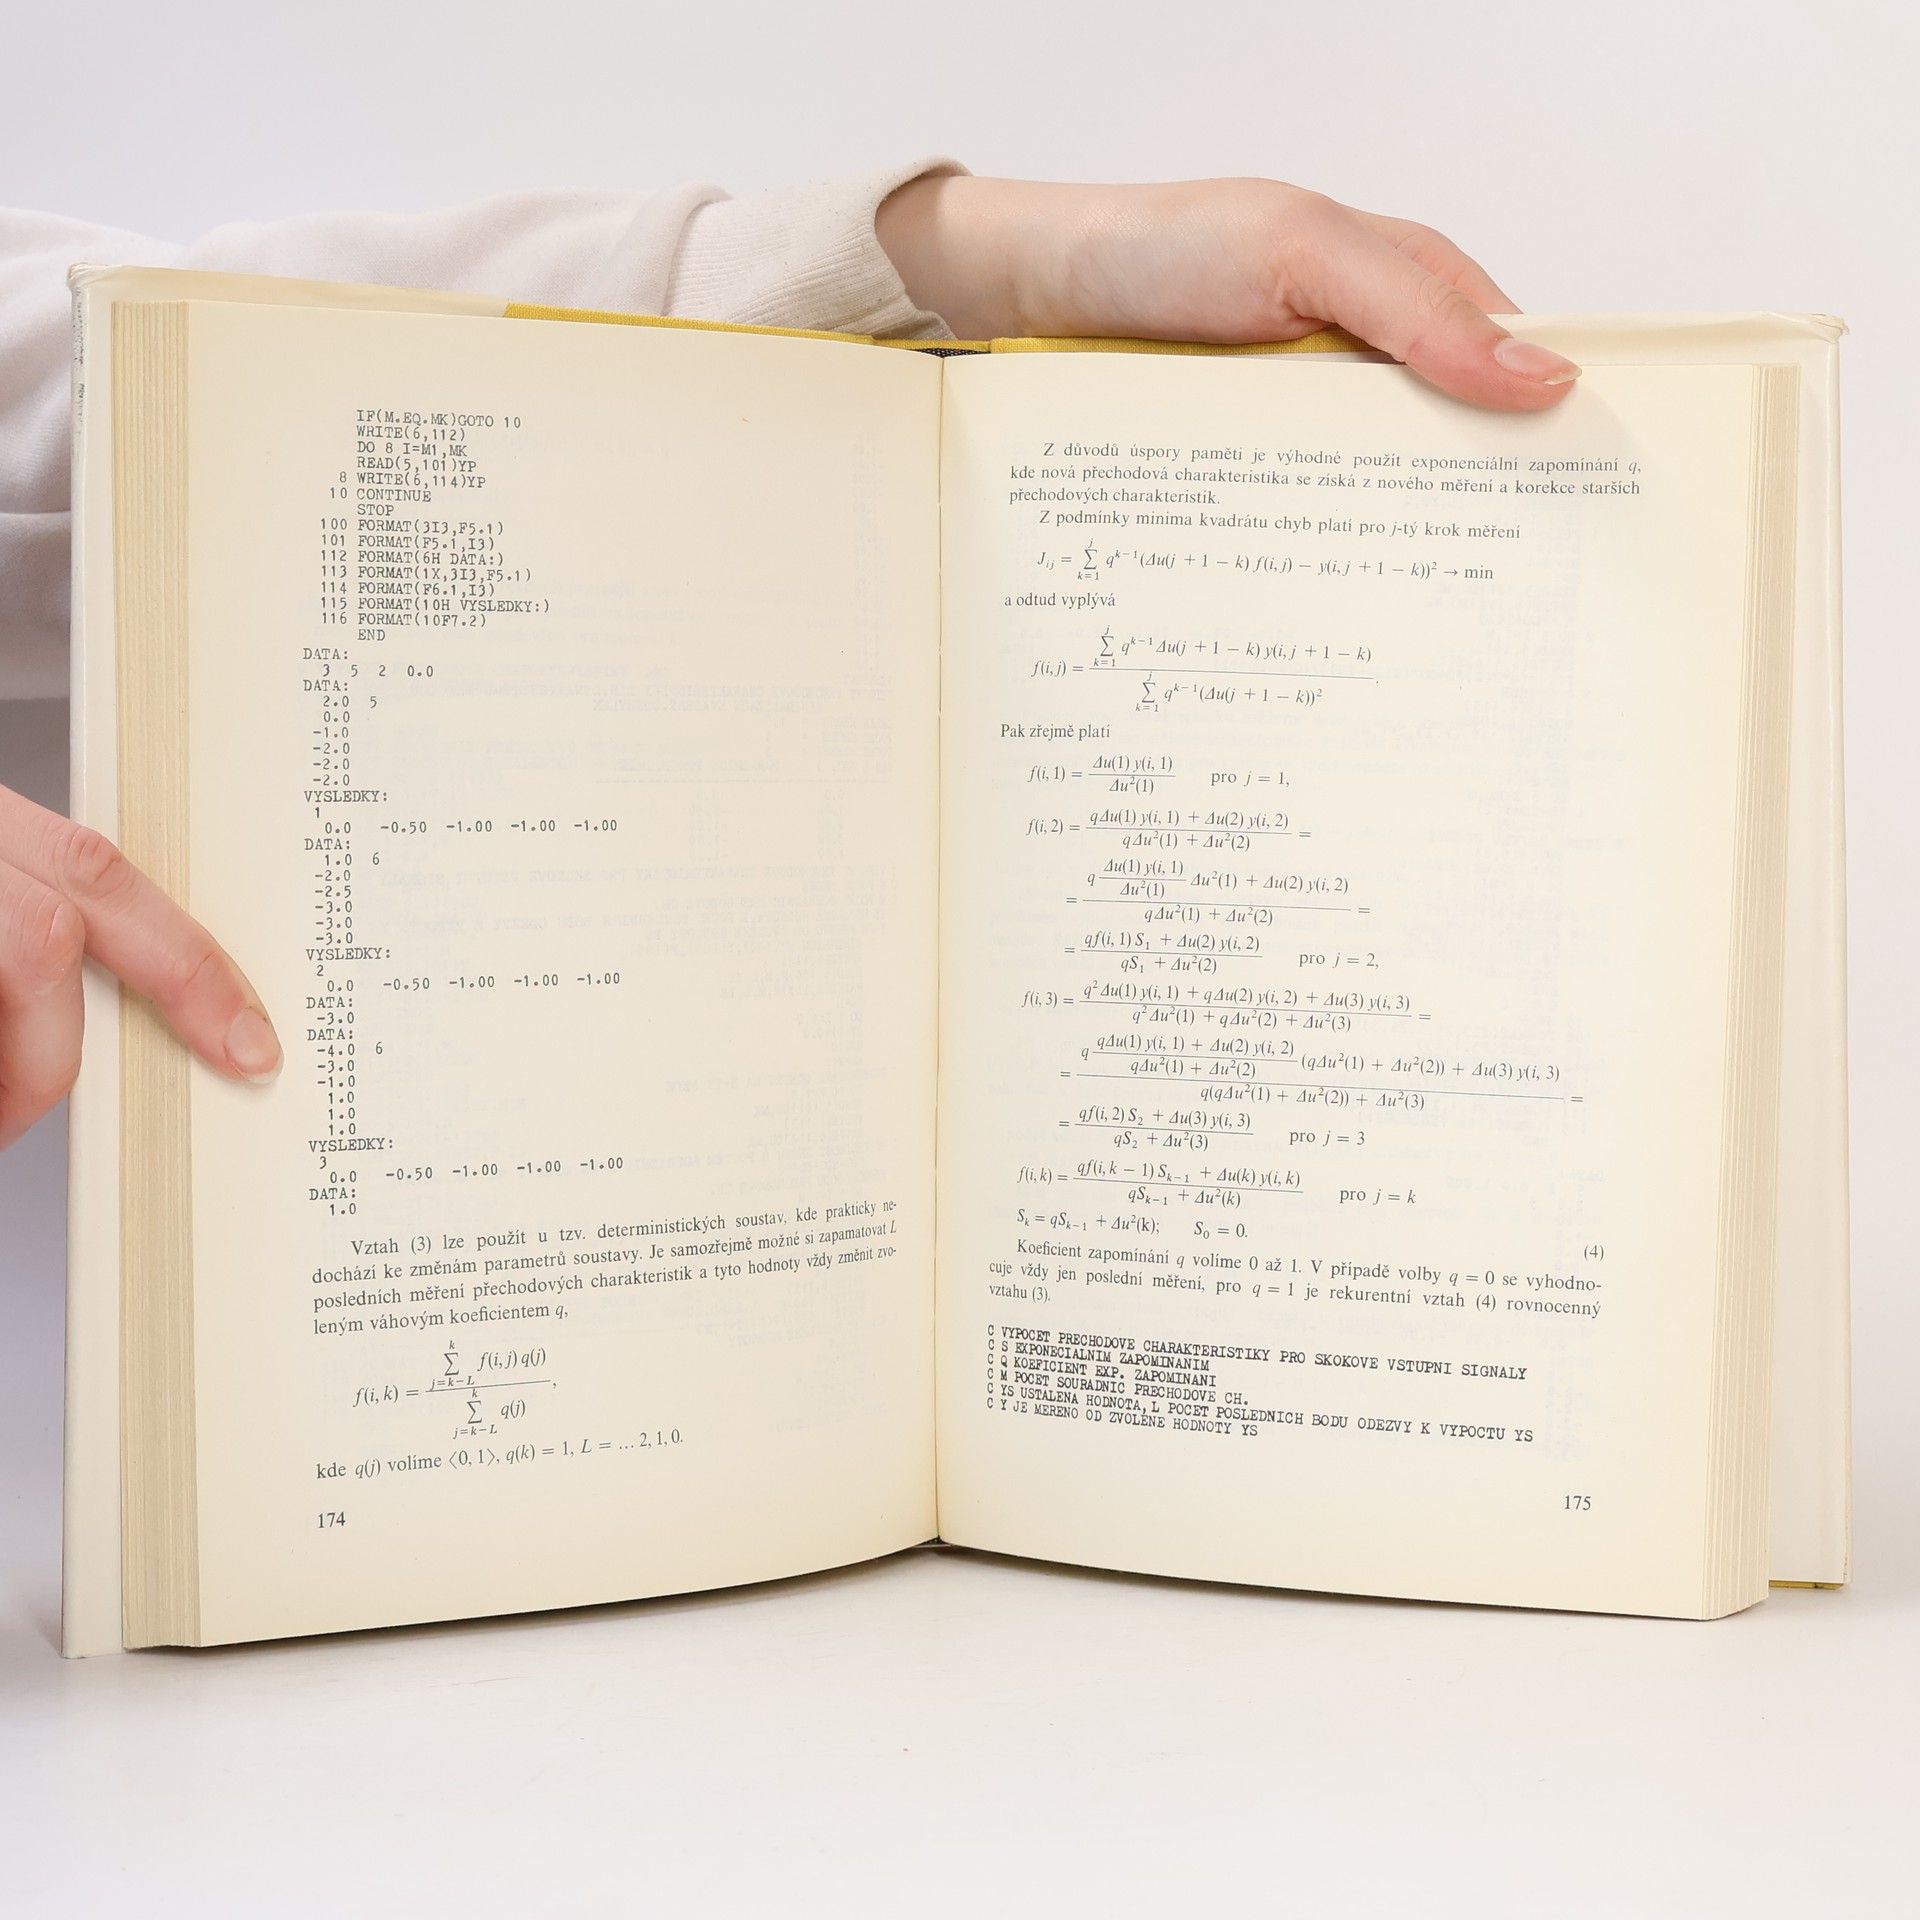 IF(M.EQ.MK)GOTO 10
WRITE(6,112)
DO 8 I=M1,MK
READ(5,101)YP
8 WRITE(6,114)YP
10 CONTINUE
STOP
100 FORMAT(3I3,F5.1)
101 FORMAT(F5.1,I3)
112 FORMAT(6H DATA:)
113 FORMAT(1X,3I3,F5.1)
114 FORMAT(F6.1,I3)
115 FORMAT(10H VYSLEDKY:)
116 FORMAT(10F7.2)
END
DATA:
3 5 2 0.0
DATA:
2.0 5
0.0
-1.0
-2.0
-2.0
-2.0
VYSLEDKY:
1
0.0 -0.50 -1.00 -1.00 -1.00
DATA:
1.0 6
-2.0
-2.5
-3.0
-3.0
-3.0
VYSLEDKY:
2
0.0 -0.50 -1.00 -1.00 -1.00
DATA:
-3.0
DATA:
-4.0 6
-3.0
-1.0
1.0
1.0
1.0
VYSLEDKY:
3
0.0 -0.50 -1.00 -1.00 -1.00
DATA:
1.0
Vztah (3) lze použít u tzv. deterministických soustav, kde prakticky ne-
dochází ke změnám parametrů soustavy. Je samozřejmě možné si zapamatovat L
posledních měření přechodových charakteristik a tyto hodnoty vždy změnit zvo-
leným váhovým koeficientem q,
f(i, k) = \frac{\sum_{j=k-L}^{k} f(i, j) q(j)}{\sum_{j=k-L}^{k} q(j)},
kde q(j) volíme ⟨0, 1⟩, q(k) = 1, L = ... 2, 1, 0.
174
Z důvodů úspory paměti je výhodné použít exponenciální zapomínání q,
kde nová přechodová charakteristika se získá z nového měření a korekce starších
přechodových charakteristik.
Z podmínky minima kvadrátu chyb platí pro j-tý krok měření
J_{ij} = \sum_{k=1}^{j} q^{k-1}(Δu(j + 1 − k) f(i, j) − y(i, j + 1 − k))² → min
a odtud vyplývá
f(i, j) = \frac{\sum_{k=1}^{j} q^{k-1} Δu(j + 1 − k) y(i, j + 1 − k)}{\sum_{k=1}^{j} q^{k-1} (Δu(j + 1 − k))²}.
Pak zřejmě platí
f(i, 1) = \frac{Δu(1) y(i, 1)}{Δu²(1)} pro j = 1,
f(i, 2) = \frac{qΔu(1) y(i, 1) + Δu(2) y(i, 2)}{qΔu²(1) + Δu²(2)} =
= \frac{q \frac{Δu(1) y(i, 1)}{Δu²(1)} Δu²(1) + Δu(2) y(i, 2)}{qΔu²(1) + Δu²(2)} =
= \frac{qf(i, 1) S_1 + Δu(2) y(i, 2)}{qS_1 + Δu²(2)} pro j = 2,
f(i, 3) = \frac{q²Δu(1) y(i, 1) + qΔu(2) y(i, 2) + Δu(3) y(i, 3)}{q²Δu²(1) + qΔu²(2) + Δu²(3)} =
= \frac{q \frac{qΔu(1) y(i, 1) + Δu(2) y(i, 2)}{qΔu²(1) + Δu²(2)} (qΔu²(1) + Δu²(2)) + Δu(3) y(i, 3)}{q(qΔu²(1) + Δu²(2)) + Δu²(3)} =
= \frac{qf(i, 2) S_2 + Δu(3) y(i, 3)}{qS_2 + Δu²(3)} pro j = 3
f(i, k) = \frac{qf(i, k − 1) S_{k−1} + Δu(k) y(i, k)}{qS_{k−1} + Δu²(k)} pro j = k
S_k = qS_{k−1} + Δu²(k); S_0 = 0.
(4)
Koeficient zapomínání q volíme 0 až 1. V případě volby q = 0 se vyhodno-
cuje vždy jen poslední měření, pro q = 1 je rekurentní vztah (4) rovnocenný
vztahu (3).
C VYPOCET PRECHODOVE CHARAKTERISTIKY PRO SKOKOVE VSTUPNI SIGNALY
C S EXPONECIALNIM ZAPOMINANIM
C Q KOEFICIENT EXP. ZAPOMINANI
C M POCET SOURADNIC PRECHODOVE CH.
C YS USTALENA HODNOTA, L POCET POSLEDNICH BODU ODEZVY K VYPOCTU YS
C Y JE MERENO OD ZVOLENE HODNOTY YS
175